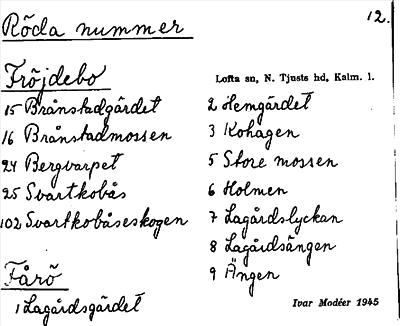 Röda nummer
12.
Fröjdebo
Lofta sn, N. Tjusts hd, Kalm. l.
15 Brånstadgärdet
16 Brånstadmossen
24 Bergvarpet
25 Svartkobås
102 Svartkobåseskogen
Fårö
1 Lagårdsgärdet
2 Hemgärdet
3 Kohagen
5 Store mossen
6 Holmen
7 Lagårdslyckan
8 Lagårdsängen
9 Ängen
Ivar Modéer 1945